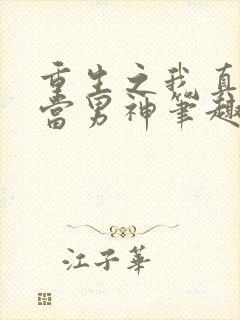 重生之我真
當男神筆趣
江子華